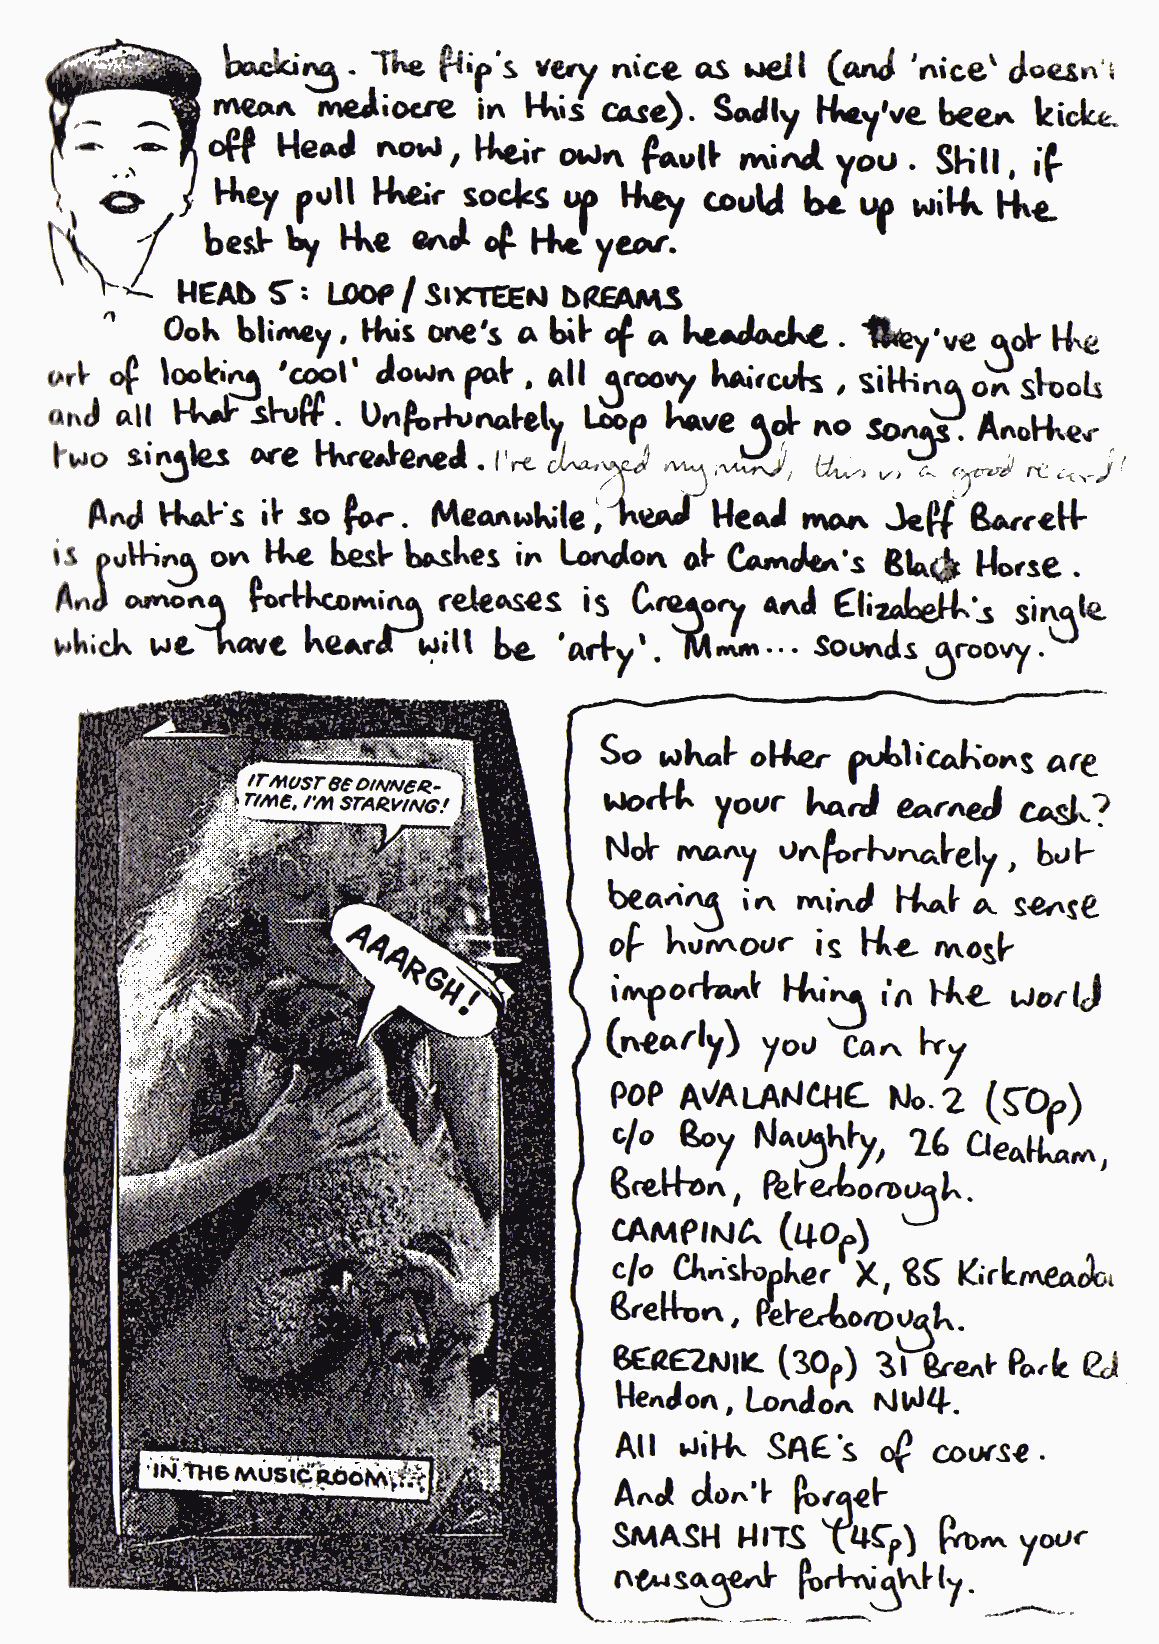 backing. The flip's very nice as well (and 'nice' doesn't
mean mediocre in this case). Sadly they've been kicke
off Head now, their own fault mind you. Still, if
they pull their socks up they could be up with the
best by the end of the year.
HEAD 5: LOOP / SIXTEEN DREAMS
Ooh blimey, this one's a bit of a headache. They've got the
art of looking 'cool' down pat, all groovy haircuts, sitting on stools
and all that stuff. Unfortunately Loop have got no songs. Another
two singles are threatened. I've changed my mind, this is a good record!
And that's it so far. Meanwhile, head Head man Jeff Barrett
is putting on the best bashes in London at Camden's Black Horse.
And among forthcoming releases is Gregory and Elizabeth's single
which we have heard will be 'arty'. Mmm... sounds groovy.
IT MUST BE DINNER-
TIME, I'M STARVING!
AAARGH!
IN THE MUSIC ROOM....
So what other publications are
worth your hard earned cash?
Not many unfortunately, but
bearing in mind that a sense
of humour is the most
important thing in the world
(nearly) you can try
POP AVALANCHE No. 2 (50p)
c/o Boy Naughty, 26 Cleatham,
Bretton, Peterborough.
CAMPING (40p)
c/o Christopher X, 85 Kirkmeadow
Bretton, Peterborough.
BEREZNIK (30p) 31 Brent Park Rd
Hendon, London NW4.
All with SAE's of course.
And don't forget
SMASH HITS (45p) from your
newsagent fortnightly.